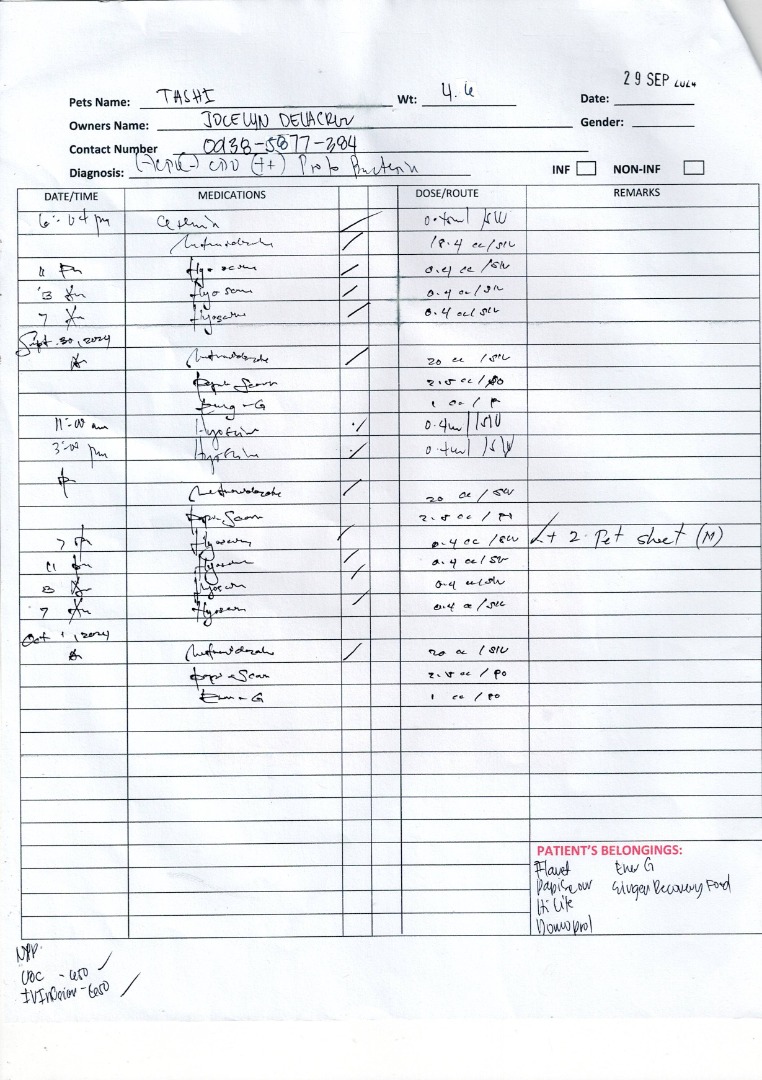 29 SEP 2024
Pets Name: TASHI Wt: 4.6 Date:
Owners Name: JOCELYN DELACRUZ Gender:
Contact Number 0938-5877-384
Diagnosis: CDV (++) Proto Bacteria INF NON-INF
DATE/TIME MEDICATIONS DOSE/ROUTE REMARKS
6:04 pm 0.4ml /SIV
18.4 cc/SIV
11 pm Hyoscine 0.4 cc /SIV
3 Am Hyoscine 0.4 cc/SIV
7 Am Hyoscine 0.4 cc/SIV
Sept. 30, 2024
Metronidazole 20 cc /SIV
Papi Scour 2.5 cc / PO
Ener-G 1 cc / P
11:00 am Hyoscine 0.4ml /SIV
3:00 pm Hyoscine 0.4ml /SIV
Metronidazole 20 cc / SIV
Papi-Scour 2.5 cc / PO
7 pm Hyoscine 0.4 cc /SIV + 2 Pet sheet (M)
11 pm Hyoscine 0.4 cc/SIV
3 Am Hyoscine 0.4 cc/SIV
7 Am Hyoscine 0.4 cc /SIV
Oct 1, 2024
Metronidazole 20 cc / SIV
Papi Scour 2.5 cc / PO
Ener-G 1 cc / PO
PATIENT'S BELONGINGS:
Ener G
Papiscour Recovery Food
Hi Lite
UOC - 650
IV Infusion - 650